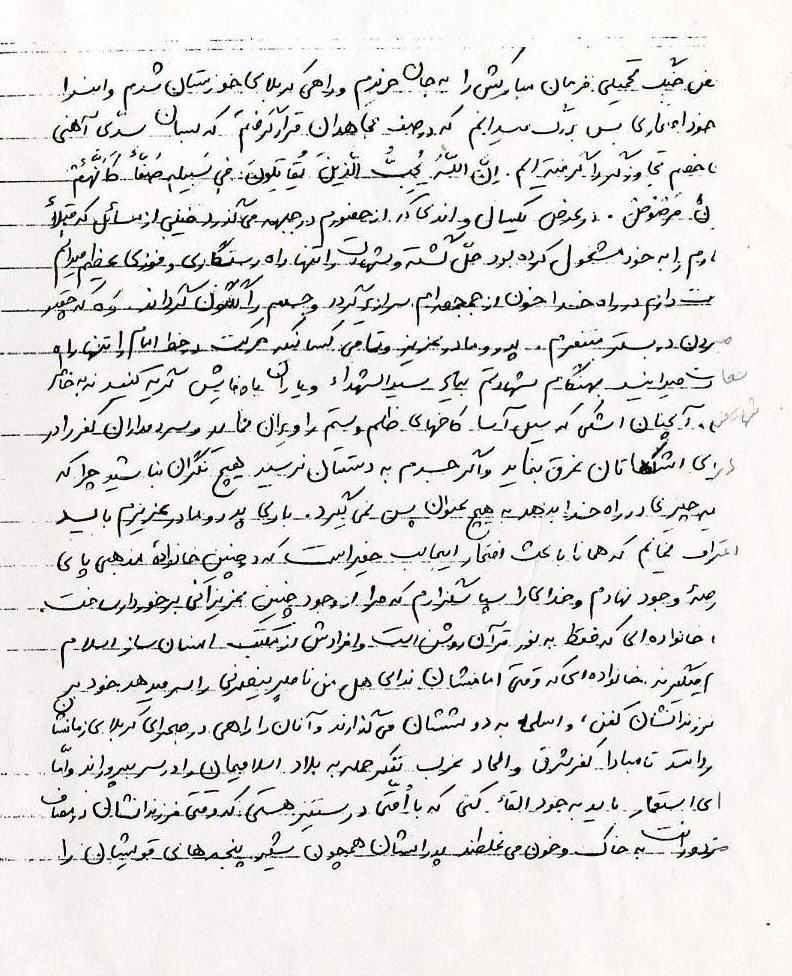 جنگ تحمیلی فرمان مبارکش را به جان خریدم و راهی کربلای خوزستان شدم و اینرا
افتخاری بس بزرگ میدانم که درصف مجاهدان قرار گرفتم که بسان سدّی آهنی
خصم تجاوزگر را گرفته ایم. اِنَّ اللّهَ یُحِبُّ الَّذینَ یُقاتِلُونَ فی سَبیلِهِ صَفّاً کَاَنَّهُمْ
مَرْصُوصٌ. در عرض یکسال و اندی که از حضورم در جبهه می گذرد خیلی از مسائل که قبلاً
را به خود مشغول کرده بود حلّ گشته و شهادت را تنها راه رستگاری و فوزی عظیم میدانم
دارم در راه خدا خون از جمجمه ام سرازیر گردد و جسمم را گلگون گرداند. که چقدر
مردن در بستر متنفرم. پدر و مادر عزیزم و تمامی کسانیکه حرکت در خط امام را تنها راه
میدانید بهنگام شهادتم بیاد سیدالشهداء و یاران باوفایش گریه کنید نه به خاطر
آنچنان اشکی که سیل آسا کاخهای ظلم و ستم را ویران نماید و سردمداران کفر را در
اشکاتان غرق نماید و اگر جسدم به دستتان نرسید هیچ نگران نباشید چرا که
چیزی را در راه خدا بدهد به هیچ عنوان پس نمی گیرد. باری پدر و مادر عزیزم باید
اعتراف نمایم که همانا باعث افتخار اینجانب حقیر است که در چنین خانوادهٔ مذهبی پا به
عرصهٔ وجود نهادم و خدای را سپاسگزارم که مرا از وجود چنین عزیزانی برخوردار ساخت.
خانواده ای که فقط به نور قرآن روشن است و افرادش از مکتب انسان ساز اسلام
میگیرند. خانواده ای که وقتی امامشان ندای هل من ناصر ینصرنی را سر میدهد خود بر تن
فرزندانشان کفن، و اسلحه به دوششان می گذارند و آنان را راهی در صحرای کربلای زمانشان
تا مبادا کفر شرق و الحاد غرب تفکر حمله به بلاد اسلامیمان را در سر بپروراند و امّا
ای استعمار باید به خود القاء کنی که با اُمّتی در ستیز هستی که وقتی فرزندانشان در مصاف
مزدورانت به خاک و خون می غلطند پدرانشان همچون شیر پنجه های قویشان را